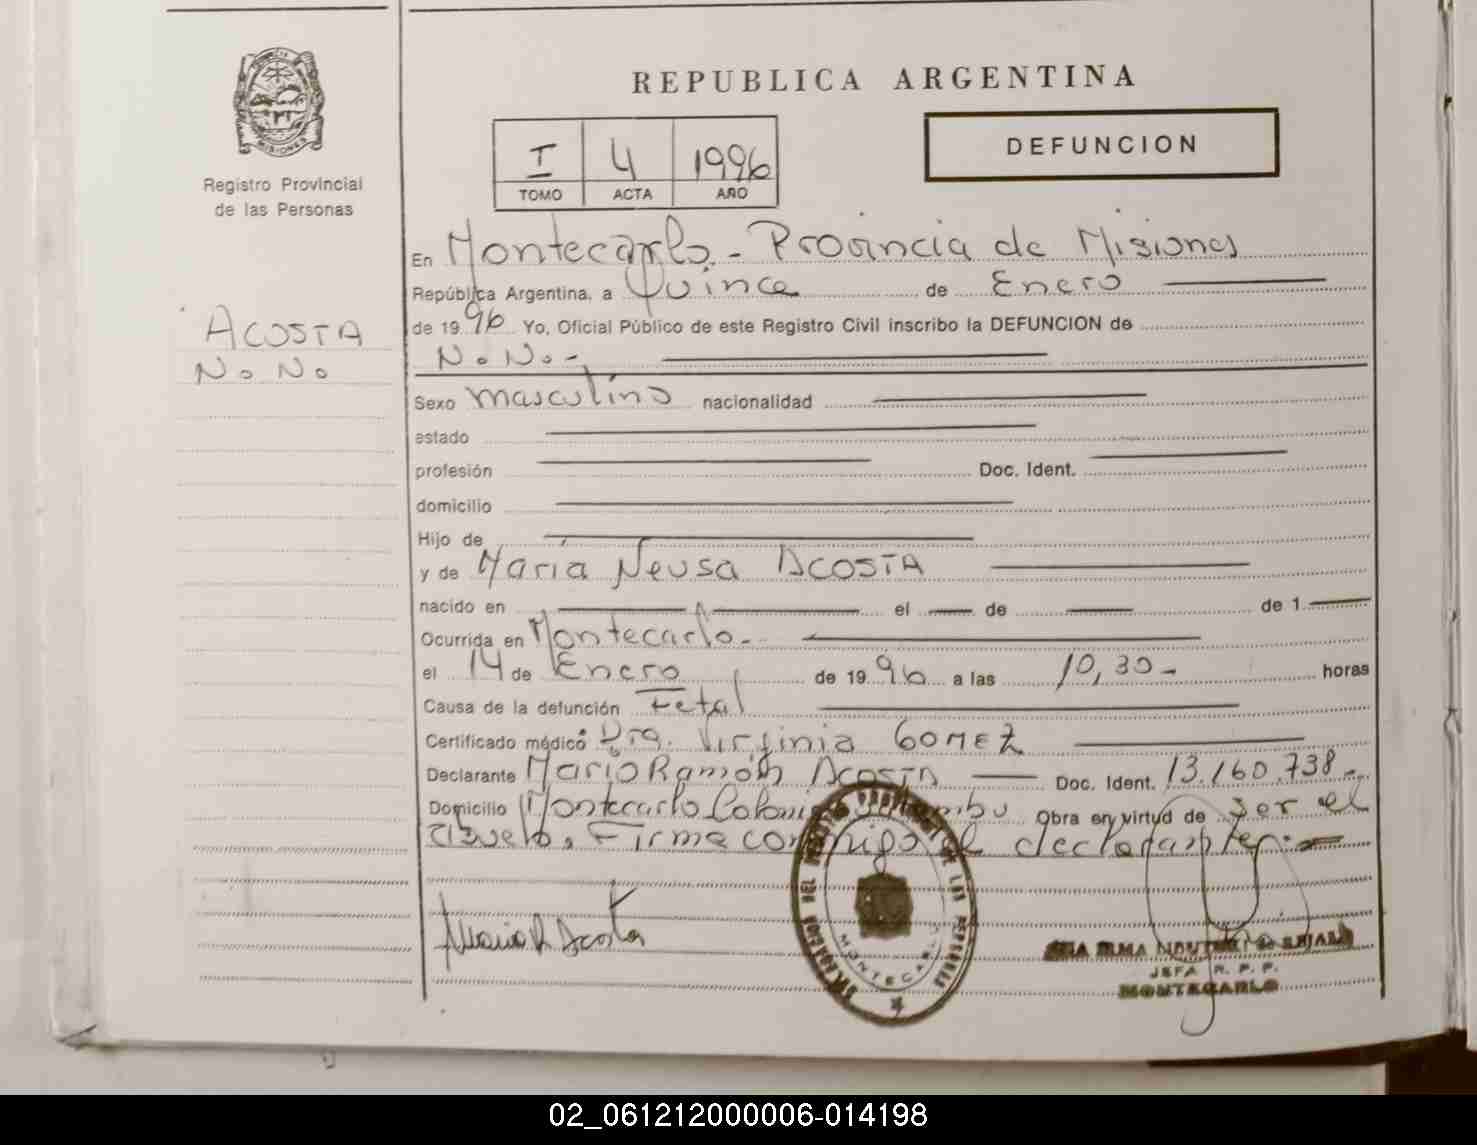 REPUBLICA ARGENTINA
DEFUNCION
MISIONES
Registro Provincial
de las Personas
I 4 1996
TOMO ACTA AÑO
En Montecarlo.- Provincia de Misiones
República Argentina, a Quince de Enero
ACOSTA
de 1996 Yo, Oficial Público de este Registro Civil inscribo la DEFUNCION de
N. N.
N. N. -
Sexo masculino nacionalidad
estado
profesión Doc. Ident.
domicilio
Hijo de
y de María Neusa ACOSTA
nacido en el de de 1
Ocurrida en Montecarlo.-
el 14 de Enero de 1996 a las 10,30- horas
Causa de la defunción Fetal
Certificado médico Dra. Virginia GOMEZ
Declarante Mario Ramón ACOSTA Doc. Ident. 13.160.738.-
Domicilio Montecarlo Colonia Obra en virtud de ser el
abuelo. Firma conmigo el declarante.-
Mario R Acosta
MONTECARLO
JEFA R. P. P.
MONTECARLO
02_061212000006-014198